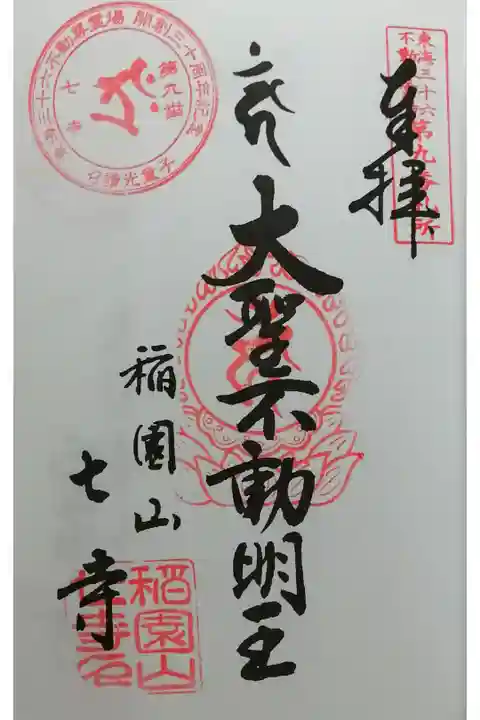 奉拝
東海三十六
不動尊
第九番札所
大聖不動明王
稲園山
七寺
東海三十六不動尊霊場 開創三十周年記念
第九番
七寺
日燿光童子
稲園山